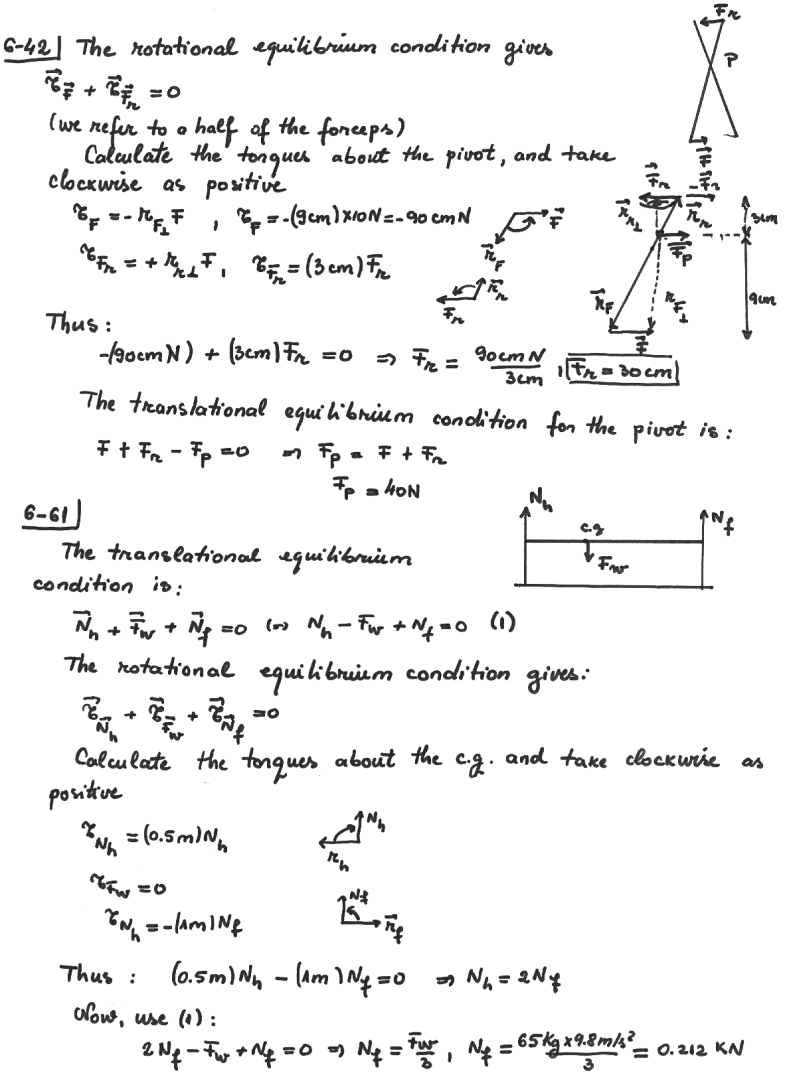 6-42 The rotational equilibrium condition gives
τ⃗_F⃗ + τ⃗_F⃗r = 0
(we refer to a half of the forceps)
Calculate the torques about the pivot, and take
clockwise as positive
τ_F = - r_F⊥ F , τ_F = -(9cm)×10N = -90 cmN
τ_Fr = + r_r⊥ F, τ_Fr = (3cm) Fr
Thus:
-(90cmN) + (3cm) Fr = 0 ⇒ Fr = 90cmN / 3cm , Fr = 30cm
The translational equilibrium condition for the pivot is:
F + Fr - Fp = 0 ⇒ Fp = F + Fr
Fp = 40N
F⃗r
P
F⃗
F⃗r
-F⃗r
r⃗r⊥
r⃗r
3cm
F⃗p
9cm
r⃗F
rF⊥
F⃗
F⃗
r⃗F
r⃗r
F⃗r
6-61
The translational equilibrium
condition is:
N⃗h + F⃗w + N⃗f = 0 (⇒ Nh - Fw + Nf = 0 (1)
Nh
c.g
Fw
Nf
The rotational equilibrium condition gives:
τ⃗_N⃗h + τ⃗_F⃗w + τ⃗_N⃗f = 0
Calculate the torques about the c.g. and take clockwise as
positive
τ_Nh = (0.5m) Nh
Nh
rh
τ_Fw = 0
τ_Nh = -(1m) Nf
Nf
r⃗f
Thus : (0.5m) Nh - (1m) Nf = 0 ⇒ Nh = 2Nf
Now, use (1) :
2Nf - Fw + Nf = 0 ⇒ Nf = Fw/3 , Nf = 65kg×9.8m/s²/3 = 0.212 KN